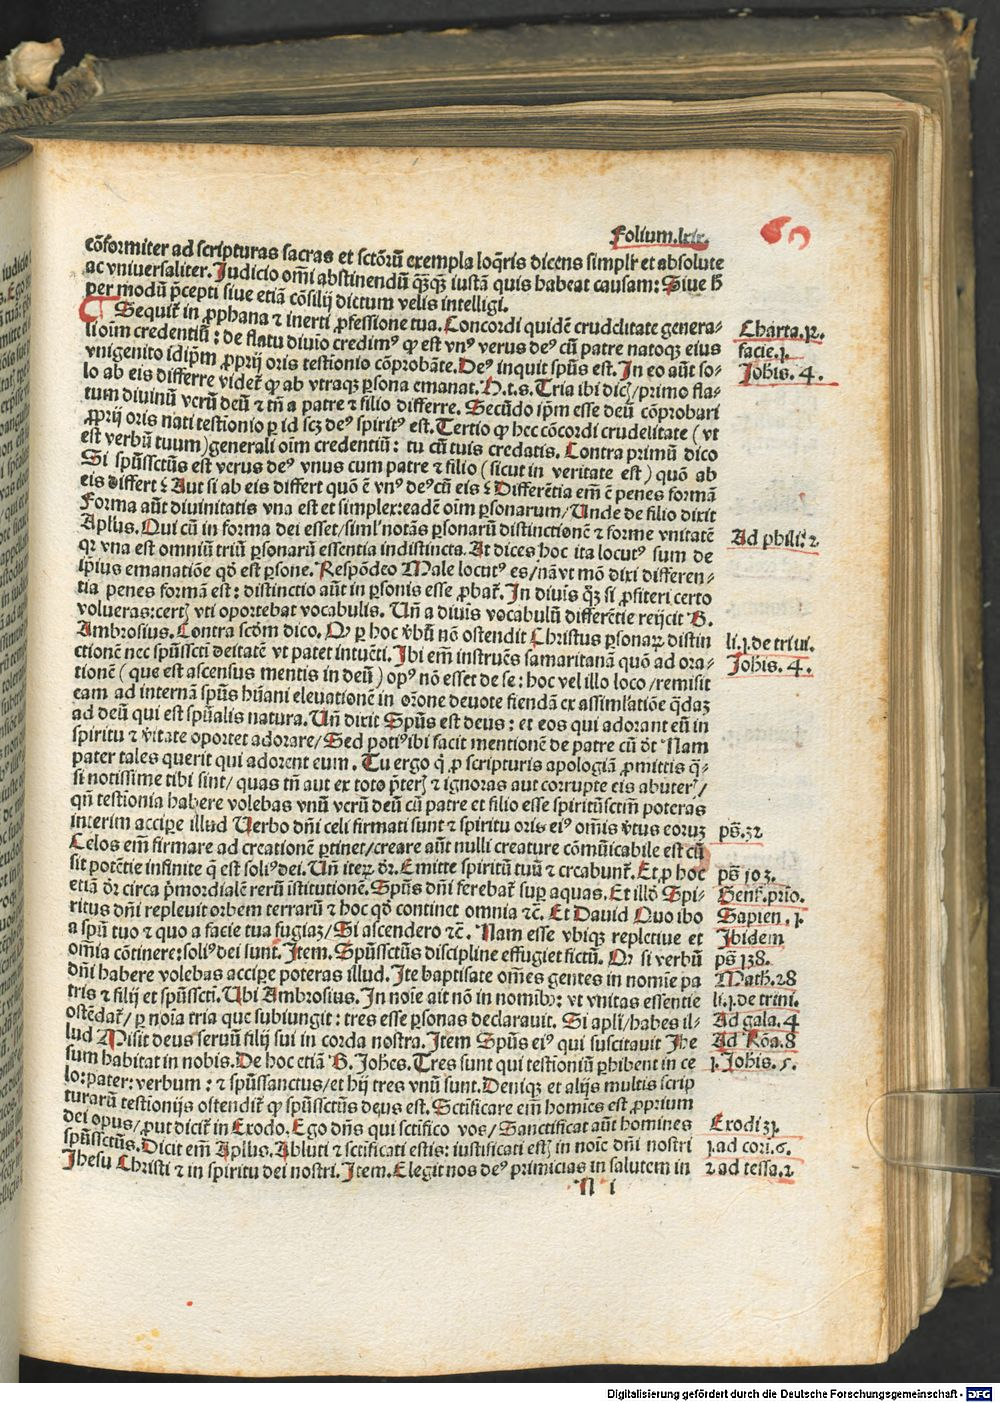 Folium.lxix.
cōformiter ad scripturas sacras et sctōrū exempla loq̄ris dicens simplr̄ et absolute
ac vniuersaliter. Judicio om̄i abstinendū q̄ꝫq̄ꝫ iustā quis habeat causam: Siue
per modū p̄cepti siue etiā cōsilij dictum velis intelligi.
Sequit᷑ in ꝓphana ⁊ inerti ꝓfessione tua. Concordi quidē crudelitate genera-
li oīm credentiū: de flatu diuio credimꝰ ꝙ est vnꝰ verus deꝰ cū patre natoqꝫ eius
vnigenito id ip̄m ꝓprij oris testionio cōprobāte. Deꝰ inquit spūs est. In eo aūt so-
lo ab eis differre videt᷑ ꝙ ab vtraqꝫ ꝑsona emanat. H.t.s. Tria ibi dic̄/ primo fla-
tum diuinū verū deū ⁊ tn̄ a patre ⁊ filio differre. Secūdo ip̄m esse deū cōprobari
ꝓprij oris nati testīonio ꝑ id scꝫ deꝰ spiritꝰ est. Tertio ꝙ hec cōcordi crudelitate (vt
est verbū tuum) generali oīm credentiū: tu cū tuis credatis. Contra primū dico
Si spūssctūs est verus deꝰ vnus cum patre ⁊ filio (sicut in veritate est) quō ab
eis differt? Aut si ab eis differt quō ē vnꝰ deꝰ cū eis? Differētia em̄ ē penes formā
Forma aūt diuinitatis vna est et simplex: eadē oīm ꝑsonarum/ Unde de filio dixit
Aplus. Qui cū in forma dei esset/ siml' notās ꝑsonarū distinctionē ⁊ forme vnitatē
qꝛ vna est omniū triū ꝑsonarū essentia indistincta. At dices hoc ita locutꝰ sum de
ip̄ius emanatiōe qd̄ est ꝑsone. Respōdeo Male locutꝰ es/ nā vt mō dixi differen-
tia penes formā est: distinctio aūt in ꝑsonis esse ꝓbat᷑. In diuis q̄ꝫ si ꝓfiteri certo
volueras: cert᷑ vti oportebat vocabulis. Un̄ a diuīs vocabulū differētie reijcit B.
Ambrosius. Contra scd̄m dico. Qꝛ ꝑ hoc v̄bū nō ostendit Christus ꝑsonaꝝ distin
ctionē nec spūsscti deitatē vt patet intuēti. Ibi em̄ instruēs samaritanā quō ad ora-
tionē (que est ascensus mentis in deū) opꝰ nō esset de se: hoc vel illo loco/ remisit
eam ad internā spūs hūani eleuationē in orōne deuote fiendā ex assimilatiōe q̄daꝫ
ad deū qui est spūalis natura. Un̄ dixit Spūs est deus: et eos qui adorant eū in
spiritu ⁊ v̄itate oportet adorare/ Sed potiꝰ ibi facit mentionē de patre cū dt̄ Nam
pater tales querit qui adorent eum. Tu ergo q̄ ꝑ scripturis apologiā ꝓmittis q̄-
si notissime tibi sint/ quas tn̄ aut ex toto p̄terꝫ ⁊ ignoras aut corrupte eis abuterꝭ/
qn̄ testīonia habere volebas vnū verū deū cū patre et filio esse spiritūsctm̄ poteras
interim accipe illud Uerbo dn̄i celi firmati sunt ⁊ spiritu oris eiꝰ om̄is v̄tus eoruꝫ
Celos em̄ firmare ad creationē ꝑtinet/ creare aūt nulli creature cōmūicabile est cū
sit potētie infinite q̄ est soliꝰ dei. Un̄ iteꝝ dr̄. Emitte spiritū tuū ⁊ creabunt᷑. Et ꝑ hoc
etiā dr̄ circa p̄mordialē rerū īstitutionē. Spūs dn̄i ferebat᷑ suꝑ aquas. Et illd̄ Spi-
ritus dn̄i repleuit orbem terrarū ⁊ hoc qd̄ continet omnia ⁊c̄. Et Dauid Quo ibo
a spū tuo ⁊ quo a facie tua fugiaꝫ/ Si ascendero ⁊c̄. Nam esse vbiqꝫ repletiue et
om̄ia cōtinere: soliꝰ dei sunt. Item. Spūssctūs discipline effugiet fictū. Qꝛ si verbū
dn̄i habere volebas accipe poteras illud. Ite baptisate om̄es gentes in nomīe pa
tris ⁊ filij et spūsscti. Ubi Ambrosius. In noīe ait nō in nomībꝰ: vt vnitas essentie
ostēdat᷑/ ꝑ noīa tria que subiungit: tres esse ꝑsonas declarauit. Si apl̄i/ habes il-
lud Misit deus seruū filij sui in corda nostra. Item Spūs eiꝰ qui suscitauit Jhe
sum habitat in nobis. De hoc etiā B. Johes. Tres sunt qui testīoniū ꝑhibent in ce
lo: pater: verbum: ⁊ spūssanctus/ et hij tres vnū sunt. Deniqꝫ et alijs multis scrip
turarū testīonijs ostendit᷑ ꝙ spūssctūs deus est. Sctīficare em̄ homies est ꝓprium
dei opus/ ꝓut dicit᷑ in Exodo. Ego dn̄s qui sctīfico vos/ Sanctificat aūt homines
spūssctūs. Dicit em̄ Aplus. Abluti ⁊ sctīficati estis: iustificati estꝭ in noīe dn̄i nostri
Jhesu Christi ⁊ in spiritu dei nostri. Item. Elegit nos deꝰ primicias in salutem in
N i
Charta.12.
facie.1.
Johis. 4.
Ad phili: 2
li.1.de tri ui.
Johis. 4.
ps̄.32
ps̄ 103.
Gen᷑.prio.
Sapien.1.
Ibidem
ps̄ 138.
Math.28
li.1.de trini.
Ad gala.4
Ad Rōa.8
1. Johis. 5.
Exodi 31.
1.ad cori.6.
2 ad tessa.2
Digitalisierung gefördert durch die Deutsche Forschungsgemeinschaft - DFG